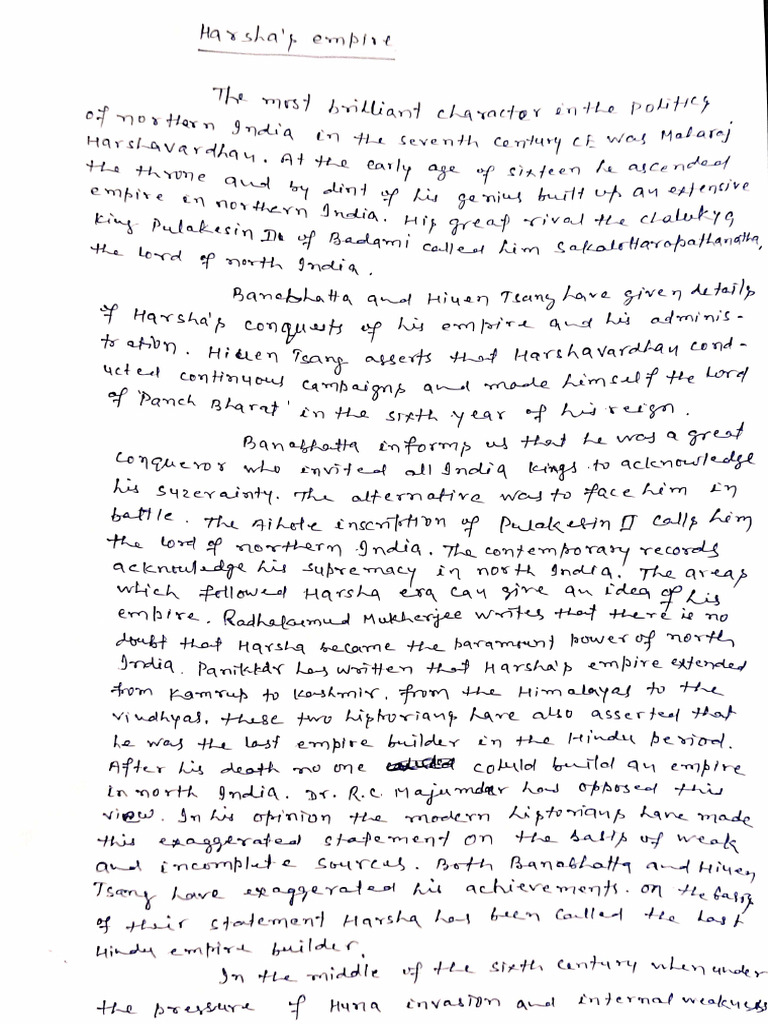 Harsha's empire
The most brilliant character in the politics
of northern India in the seventh century CE was Maharaj
Harshavardhan. At the early age of sixteen he ascended
the throne and by dint of his genius built up an extensive
empire in northern India. His great rival the chalukya
king Pulakesin II of Badami called him Sakalottarapathanatha,
the lord of north India.
Banabhatta and Hiuen Tsang have given details
of Harsha's conquests of his empire and his adminis-
tration. Hiuen Tsang asserts that Harshavardhan cond-
ucted continuous campaigns and made himself the Lord
of 'Panch Bharat' in the sixth year of his reign.
Banabhatta informs us that he was a great
conqueror who invited all India kings to acknowledge
his suzerainty. The alternative was to face him in
battle. The Aihole inscription of Pulakesin II calls him
the lord of northern India. The contemporary records
acknowledge his supremacy in north India. The areas
which followed Harsha era can give an idea of his
empire. Radhakumud Mukherjee writes that there is no
doubt that Harsha became the paramount power of north
India. Panikkar has written that Harsha's empire extended
from Kamrup to Kashmir, from the Himalayas to the
vindhyas. These two historians have also asserted that
he was the last empire builder in the Hindu period.
After his death no one could build an empire
in north India. Dr. R.C. Majumdar has opposed this
view. In his opinion the modern historians have made
this exaggerated statement on the basis of weak
and incomplete sources. Both Banabhatta and Hiuen
Tsang have exaggerated his achievements. On the basis
of their statement Harsha has been called the last
Hindu empire builder.
In the middle of the sixth century when under
the pressure of Huna invasion and internal weakness